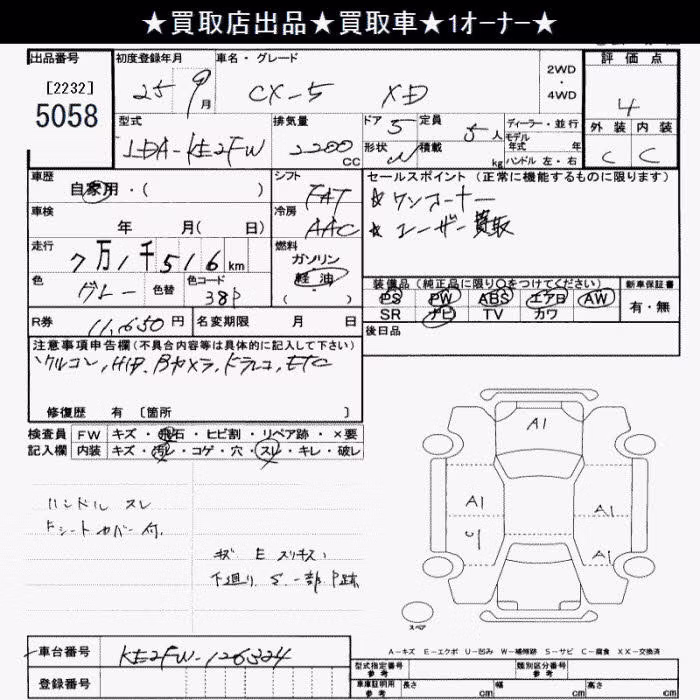 ★買取店出品★買取車★1オーナー★
出品番号
[2232]
5058
初度登録年月
25 9月
車名・グレード
CX-5 XD
2WD・4WD
評価点
4
外装 内装
C C
型式
LDA-KE2FW
排気量
2200 CC
ドア 5
形状 W
定員 5人
積載 kg
ディーラー・並行
モデル年式 年
ハンドル 左・右
車歴
自家用・( )
シフト
FAT
車検
年 月( 日)
冷房
AAC
走行
7万1千516km
燃料
ガソリン
軽油
( ・ )
色
グレー
色替
色コード
38P
セールスポイント(正常に機能するものに限ります)
★ワンオーナー
★ユーザー買取
装備品(純正品に限り○をつけてください)
PS PW ABS エアB AW
SR ナビ TV カワ
新車保証書
有・無
後日品
R券 11,650円
名変期限 月 日
注意事項申告欄(不具合内容等は具体的に記入して下さい)
クルコン, HID, Bカメラ, ドラレコ, ETC
修復歴 有 〔箇所 〕
検査員記入欄
FW キズ・飛石・ヒビ割・リペア跡・×要
内装 キズ・汚レ・コゲ・穴・スレ・キレ・破レ
ハンドル スレ
Fシートカバー付.
キズ E スリキズ
下廻り S 一部P跡
A1
A1
A1
A1
C
スペア
A-キズ E-エクボ U-凹み W-補修跡 S-サビ C-腐食 XX-交換済
車台番号
KE2FW-126324
登録番号
型式指定番号 参考
類別区分番号 参考
車庫証明用 参考
長さ cm
幅 cm
高さ cm